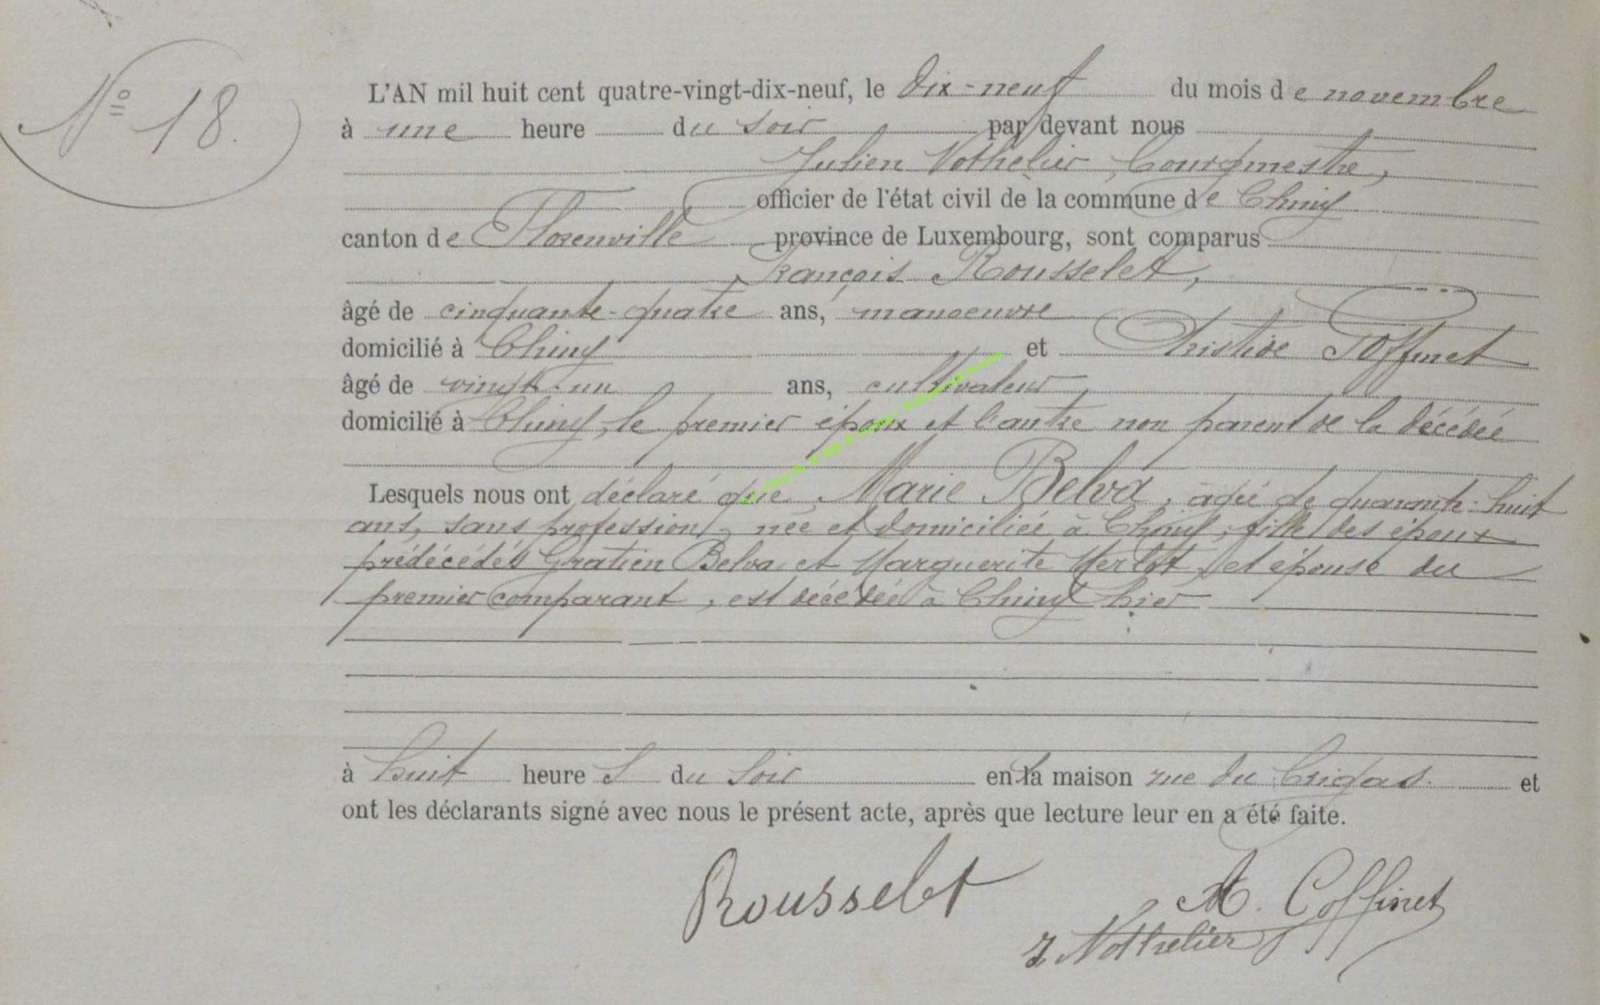 N° 18.
L'AN mil huit cent quatre-vingt-dix-neuf, le dix-neuf du mois de novembre
à une heure du soir par devant nous
Julien Nothelier, bourgmestre,
officier de l'état civil de la commune de Chiny
canton de Florenville province de Luxembourg, sont comparus
François Rousselet,
âgé de cinquante-quatre ans, manoeuvre
domicilié à Chiny et Aristide Goffinet
âgé de vingt-un ans, cultivateur
domicilié à Chiny, le premier époux et l'autre non parent de la décédée
Lesquels nous ont déclaré que Marie Belva, âgée de quarante-huit
ans, sans profession, née et domiciliée à Chiny, fille des époux
prédécédés Gratien Belva et Marguerite Merlot, et épouse du
premier comparant, est décédée à Chiny hier
à huit heures du soir en la maison rue du et
ont les déclarants signé avec nous le présent acte, après que lecture leur en a été faite.
Rousselet
A. Goffinet
J. Nothelier